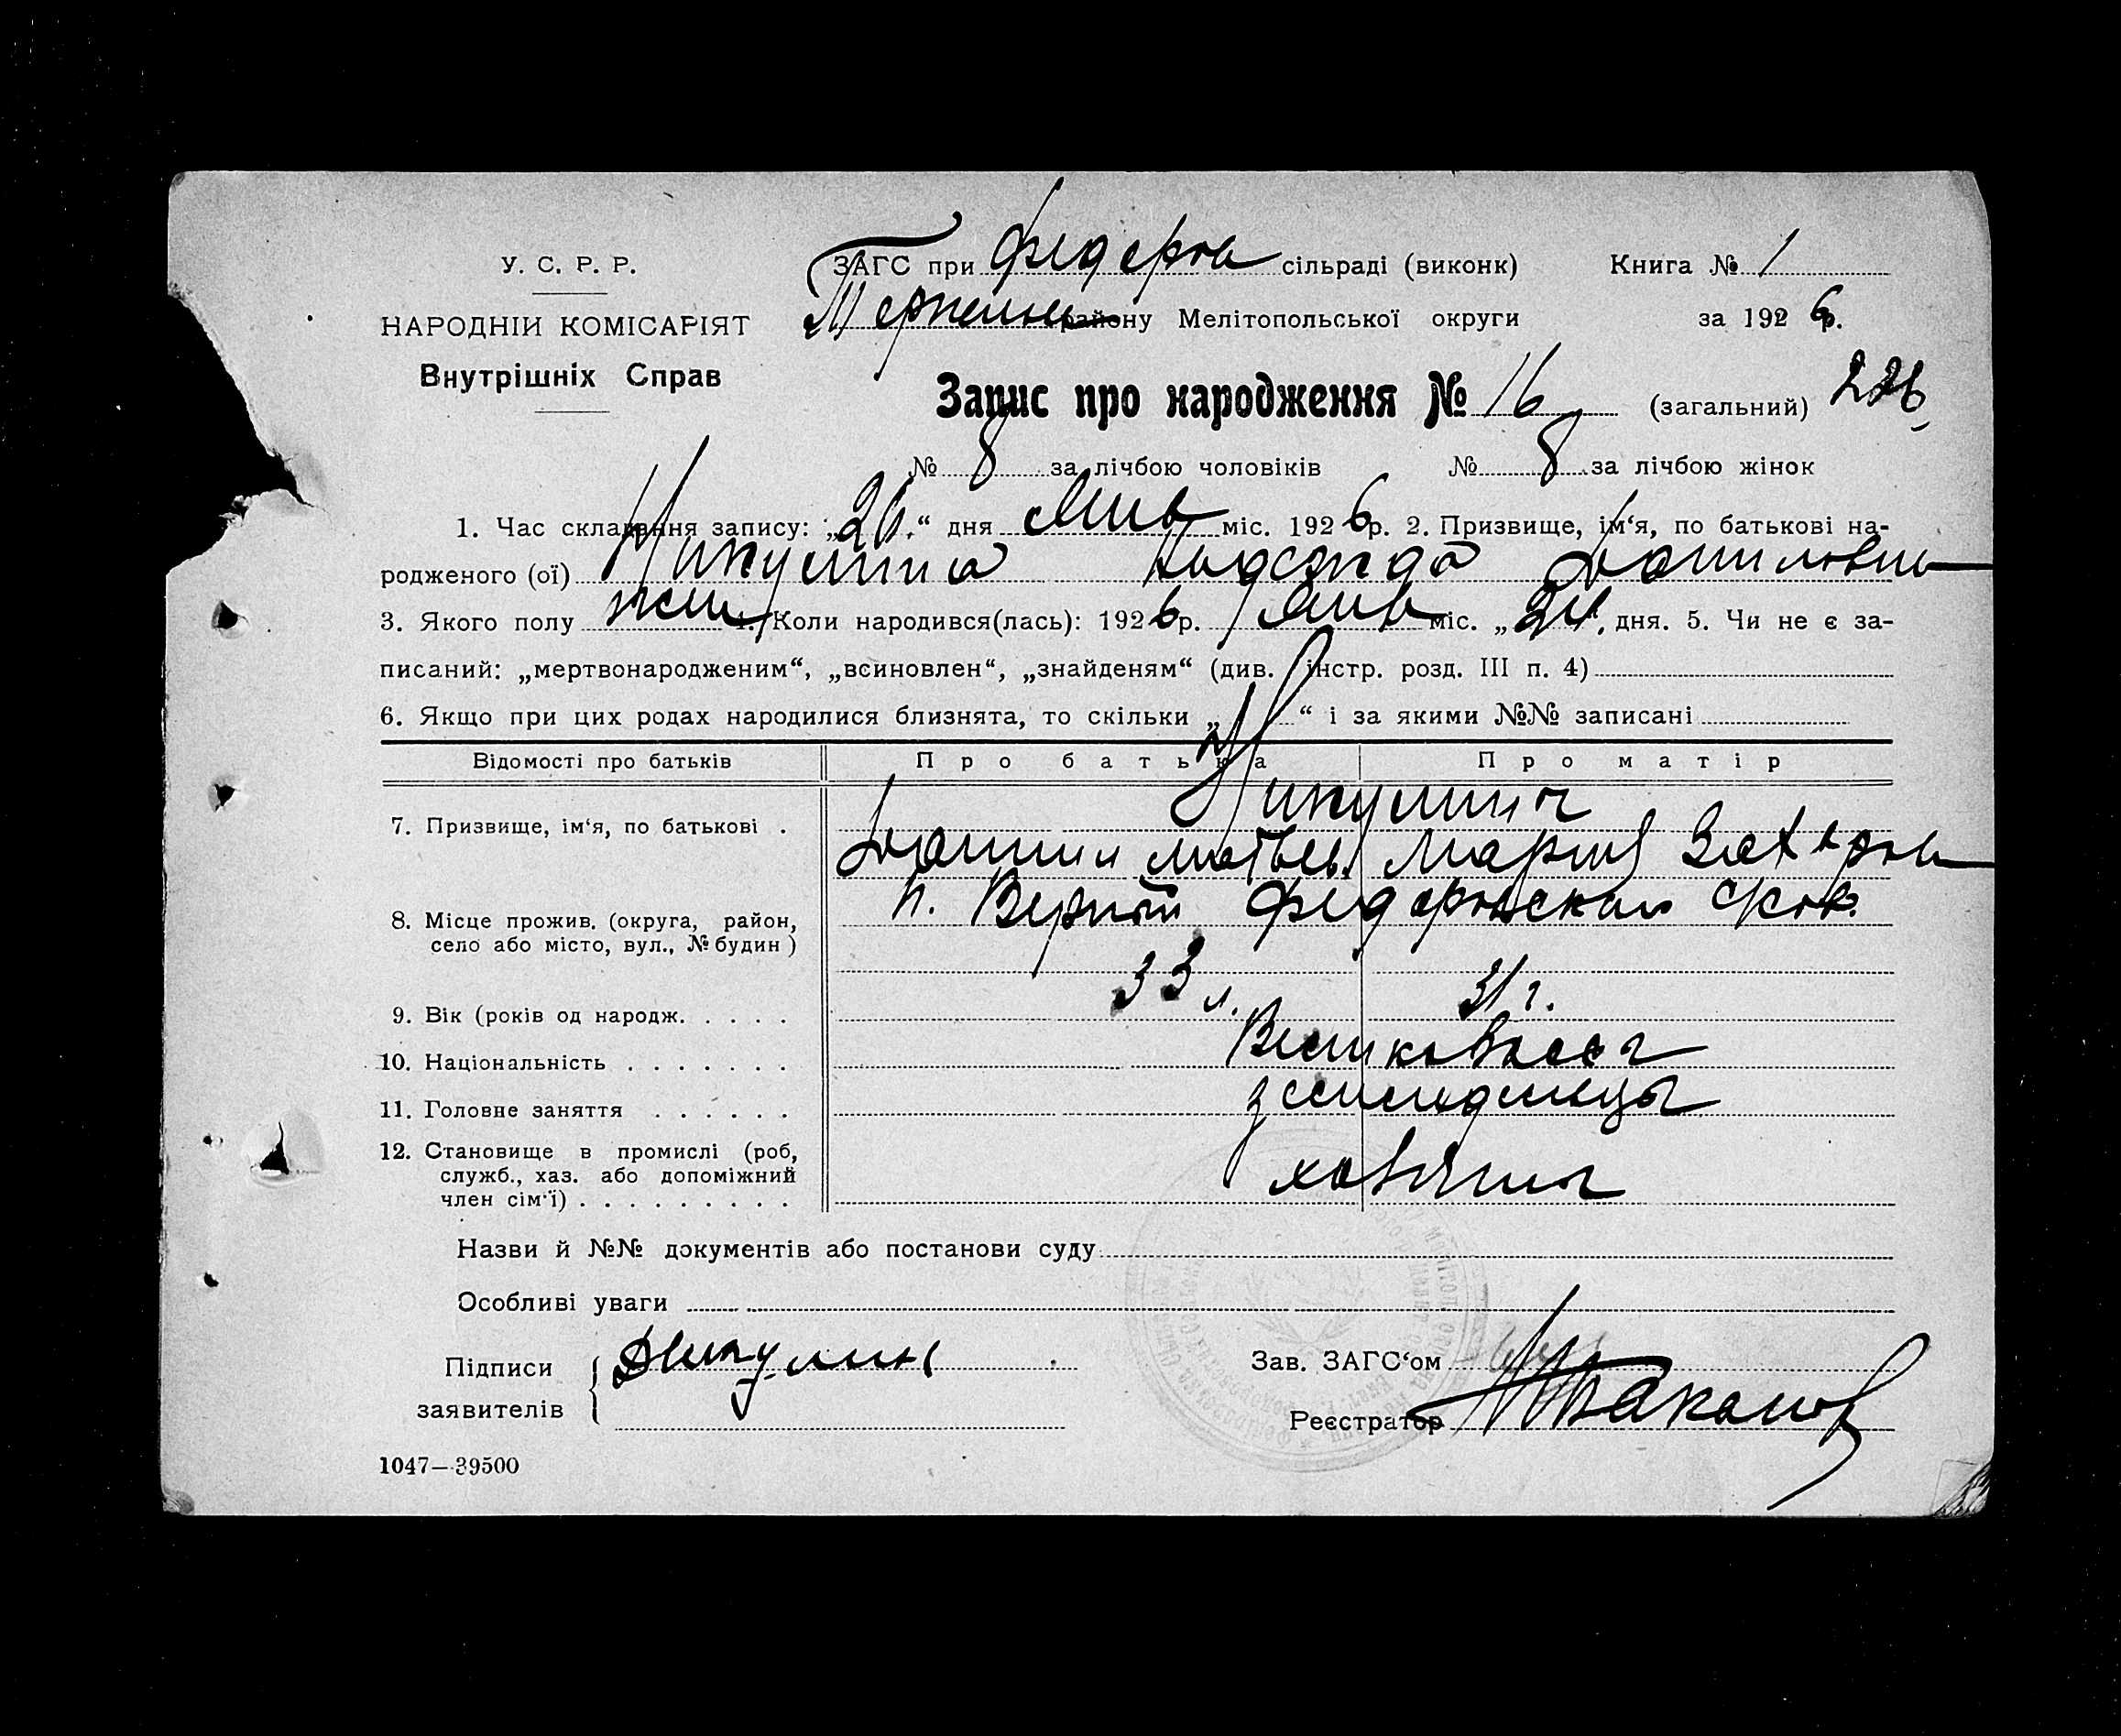 У. С. Р. Р.
НАРОДНІЙ КОМІСАРІЯТ
Внутрішніх Справ
ЗАГС при Федеров сільраді (виконк) Книга № 1
Терпен району Мелітопольської округи за 1926 р.
Запис про народження № 16 (загальний) 226
№ 8 за лічбою чоловіків № 8 за лічбою жінок
1. Час складання запису: „26“ дня Янв міс. 1926 р. 2. Призвище, ім‘я, по батькові на-
родженого (ої) Никулина Надежда Даниловна
3. Якого полу жен 4. Коли народився(лась): 1926 р. Янв міс. „24“ дня. 5. Чи не є за-
писаний: „мертвонародженим“, „всиновлен“, „знайденям“ (див. інстр. розд. III п. 4)
6. Якщо при цих родах народилися близнята, то скільки „ “ і за якими №№ записані
Відомості про батьків Про батька Про матір
7. Призвище, ім‘я, по батькові . Никулины
Даниил Матвеев Мария Захаров
8. Місце прожив. (округа, район, село або місто, вул., № будин) п. Верный Федоровской
9. Вік (років од народж. . . . . 33 л. 31 г.
10. Національність . . . . . . . Великоросы
11. Головне заняття . . . . . . земледельцы
12. Становище в промислі (роб,
служб., хаз. або допоміжний
член сім‘ї) . . . . . . . . . хозяины
Назви й №№ документів або постанови суду
Особливі уваги
Підписи Дникулин Зав. ЗАГС‘ом
заявителів Реєстратор
1047—39500